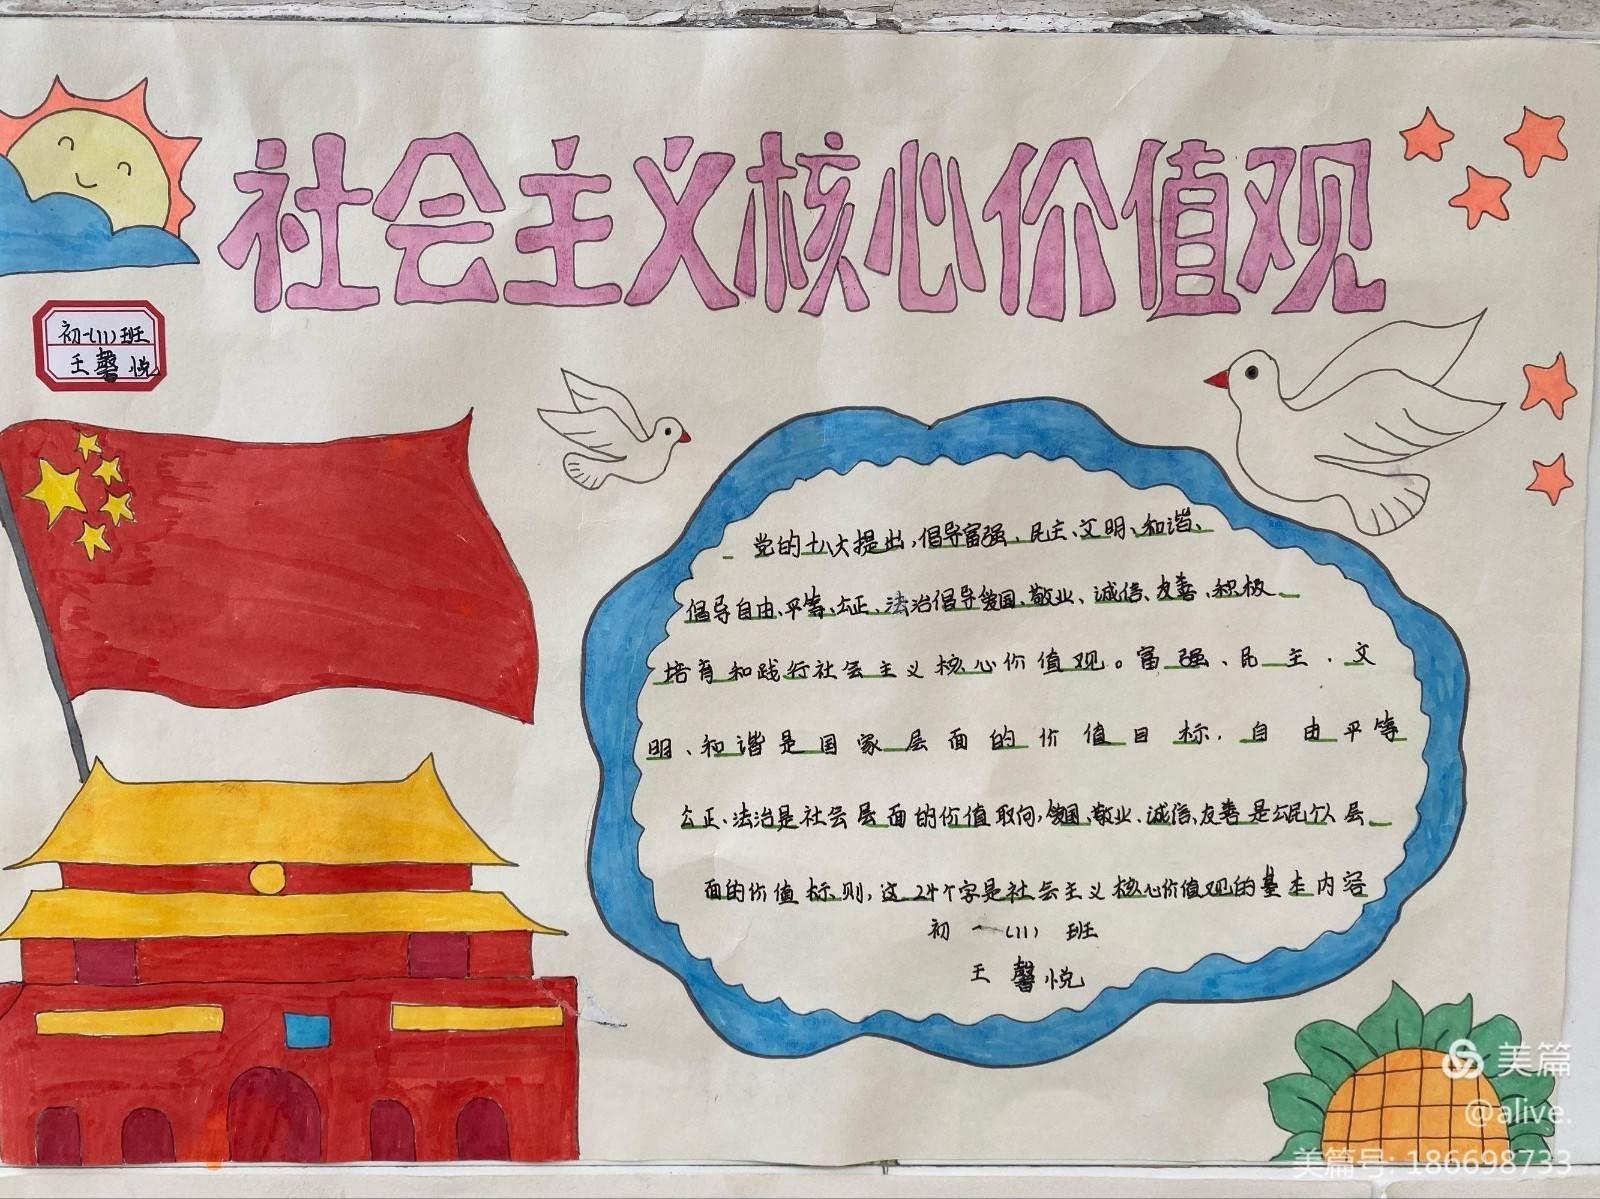 社会主义核心价值观
初一(11)班
王馨悦
党的十八大提出,倡导富强、民主、文明、和谐、
倡导自由、平等、公正、法治倡导爱国、敬业、诚信、友善、积极
培育和践行社会主义核心价值观。富强、民主、文
明、和谐是国家层面的价值目标,自由平等
公正、法治是社会层面的价值取向,爱国、敬业、诚信、友善是公民个人层
面的价值标则,这24个字是社会主义核心价值观的基本内容
初一(11)班
王馨悦
美篇
@alive.
美篇号: 186698733